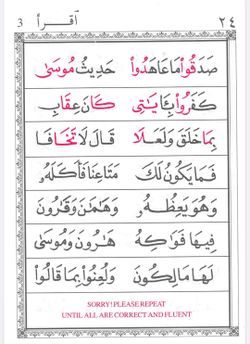 ٢٤ أقرأ 3
صَدَقُوا مَا عَاهَدُوا حَدِيثُ مُوسَىٰ
كَفَرُوا بِئَايَٰتِى كَانَ عِقَابِ
بِمَا خَلَقَ وَلَعَلَا قَالَ لَا تَخَافَا
فَمَا يَكُونُ لَكَ مَتَاعِنَا فَأَكَلَهُ
وَهُوَ يَعِظُهُ وَهَٰمَٰنَ وَقَٰرُونَ
فِيهَا فَوَٰكِهُ هَٰرُونَ وَمُوسَىٰ
لَهَا مَالِكُونَ وَلُعِنُوا بِمَا قَالُوا
SORRY! PLEASE REPEAT
UNTIL ALL ARE CORRECT AND FLUENT